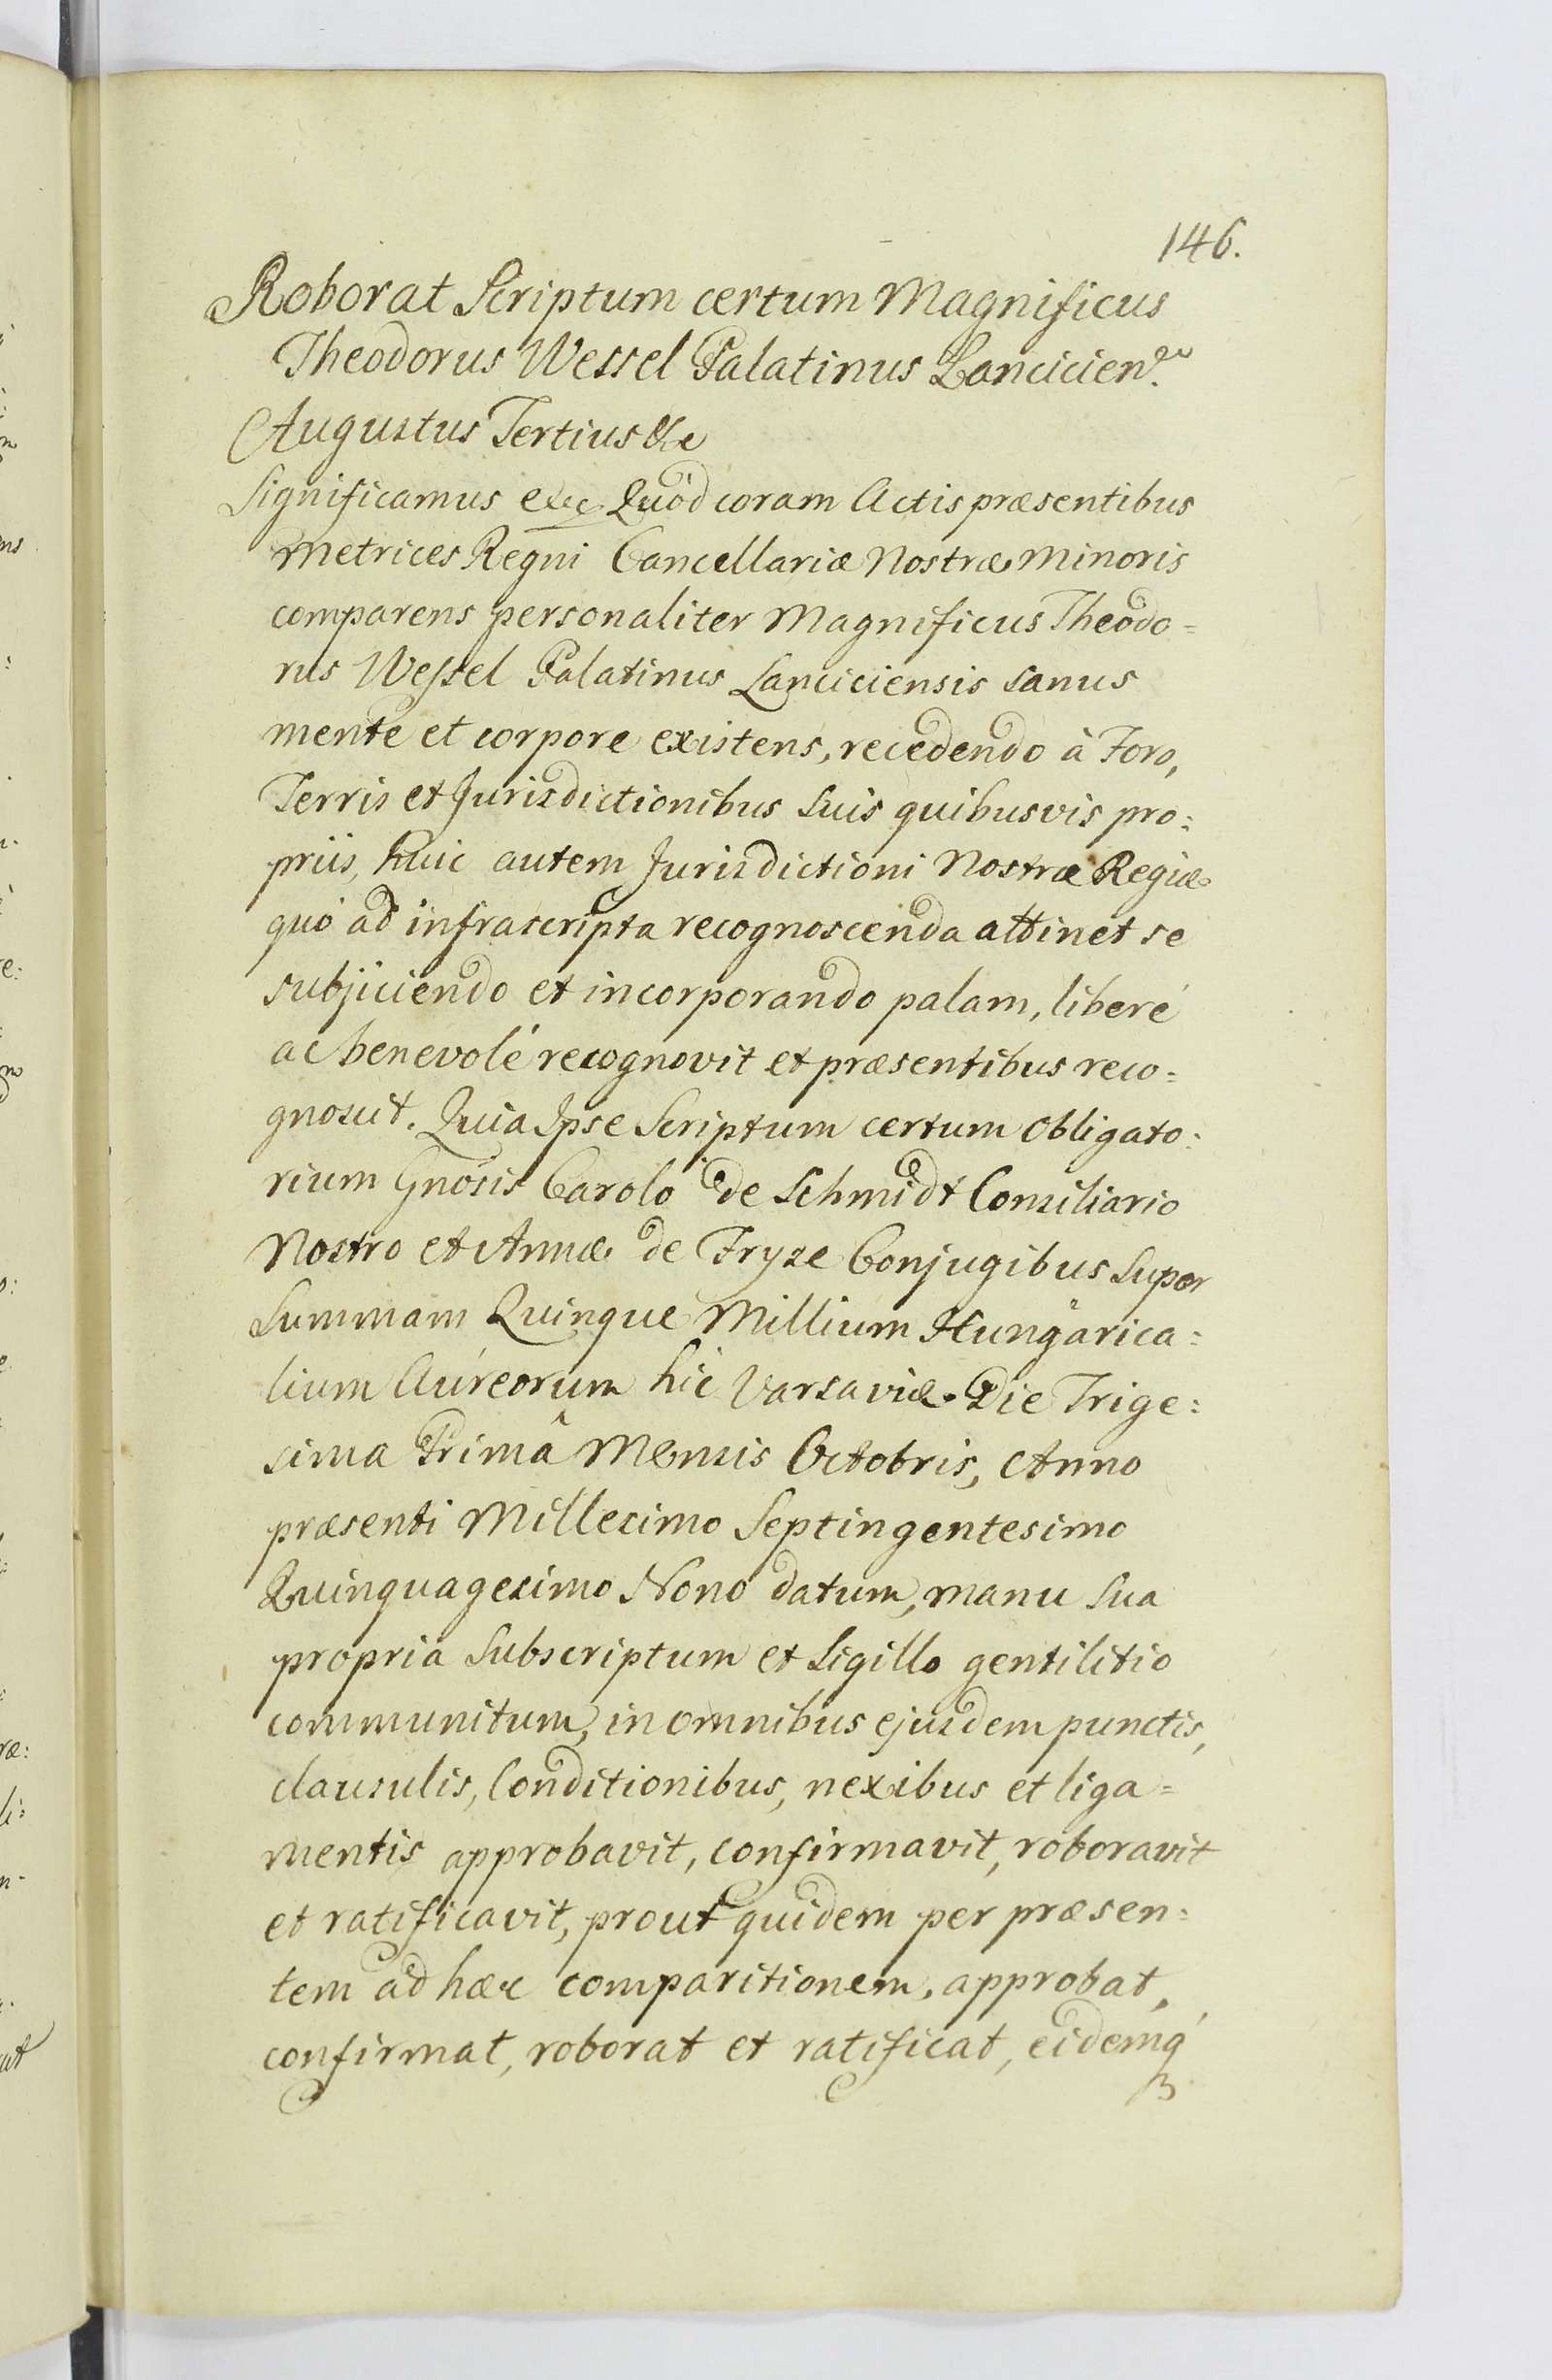 146.
Roborat Scriptum certum Magnificus
Theodorus Wessel Palatinus Lancicien.
Augustus Tertius &c
Significamus etc Quod coram Actis præsentibus
Metrices Regni Cancellariæ Nostræ Minoris
comparens personaliter Magnificus Theodo=
rus Wessel Palatinus Lanciciensis sanus
mente et corpore existens, recedendo à Foro,
Terris et Jurisdictionibus suis quibusvis pro:
priis, huic autem Jurisdictioni Nostræ Regiæ
quó ad infrascripta recognoscenda attinet se
subjiciendo et incorporando palam, liberé
ac benevolé recognovit et præsentibus reco=
gnoscit. Quia Ipse Scriptum certum Obligato:
rium Gnosis Carolo de Schmidt Consiliario
Nostro et Annæ de Fryze Conjugibus super
Summam Quinque Millium Hungarica:
lium Aureorum hic Varsaviæ Die Trige:
sima Primâ Mensis Octobris, Anno
præsenti Millesimo Septingentesimo
Quinquagesimo Nono datum, manu sua
propria subscriptum et Sigillo gentilitio
communitum, in omnibus ejusdem punctis,
clausulis, Conditionibus, nexibus et liga=
mentis approbavit, confirmavit, roboravit
et ratificavit, prout quidem per præsen:
tem ad hæc comparitionem, approbat,
confirmat, roborat et ratificat, eidemq́